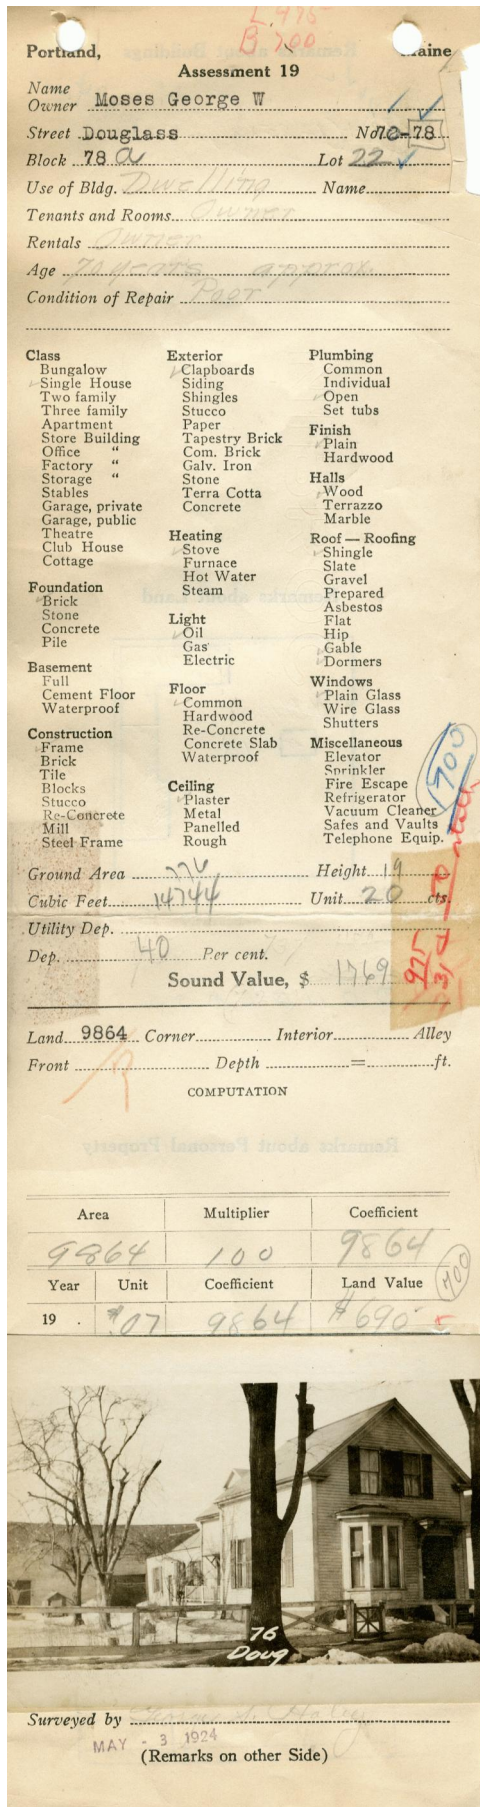 L 975
B 700
Portland, Maine
Assessment 19
Name
Owner Moses George W
Street Douglass No 70-78
Block 78 a Lot 22
Use of Bldg. Dwelling Name
Tenants and Rooms Owner
Rentals Owner
Age 70 years approx.
Condition of Repair Poor
Class
Bungalow
Single House
Two family
Three family
Apartment
Store Building
Office "
Factory "
Storage "
Stables
Garage, private
Garage, public
Theatre
Club House
Cottage
Foundation
Brick
Stone
Concrete
Pile
Basement
Full
Cement Floor
Waterproof
Construction
Frame
Brick
Tile
Blocks
Stucco
Re-Concrete
Mill
Steel Frame
Exterior
Clapboards
Siding
Shingles
Stucco
Paper
Tapestry Brick
Com. Brick
Galv. Iron
Stone
Terra Cotta
Concrete
Heating
Stove
Furnace
Hot Water
Steam
Light
Oil
Gas
Electric
Floor
Common
Hardwood
Re-Concrete
Concrete Slab
Waterproof
Ceiling
Plaster
Metal
Panelled
Rough
Plumbing
Common
Individual
Open
Set tubs
Finish
Plain
Hardwood
Halls
Wood
Terrazzo
Marble
Roof — Roofing
Shingle
Slate
Gravel
Prepared
Asbestos
Flat
Hip
Gable
Dormers
Windows
Plain Glass
Wire Glass
Shutters
Miscellaneous
Elevator
Sprinkler
Fire Escape
Refrigerator
Vacuum Cleaner
Safes and Vaults
Telephone Equip.
1900
Ground Area 776 Height 19
Cubic Feet 14744 Unit 20 cts.
Utility Dep.
Dep. 40 Per cent.
975
Sound Value, $ 1769
Land 9864 Corner Interior Alley
Front Depth = ft.
COMPUTATION
Area Multiplier Coefficient
9864 100 9864
Year Unit Coefficient Land Value
700
19 . $.07 9864 $690
76
Doug
Surveyed by
MAY - 3 1924
(Remarks on other Side)